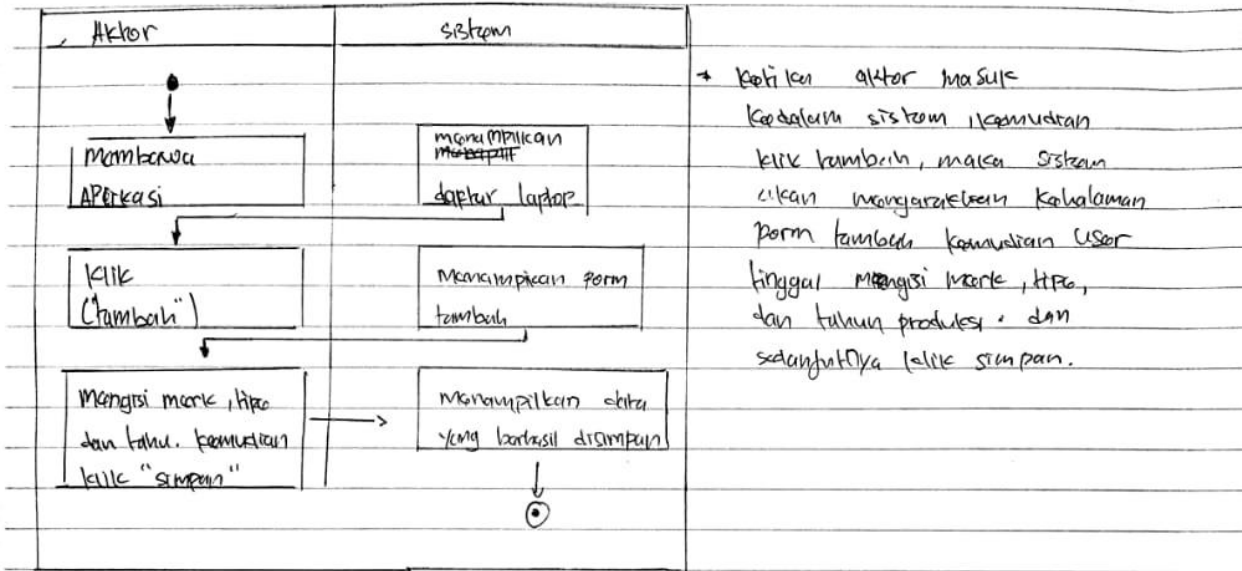 Aktor
sistem
Membawa
APlikasi
menampilkan
daftar laptop
klik
("tambah")
Menampilkan form
tambah
Mengisi merk, tipe
dan tahu. kemudian
klik "simpan"
Menampilkan data
yang berhasil disimpan
* ketika aktor masuk
kedalam sistem, kemudian
klik tambah, maka sistem
akan mengarahkan kehalaman
form tambah kemudian user
tinggal mengisi merk, tipe,
dan tahun produksi. dan
selanjutnya klik simpan.